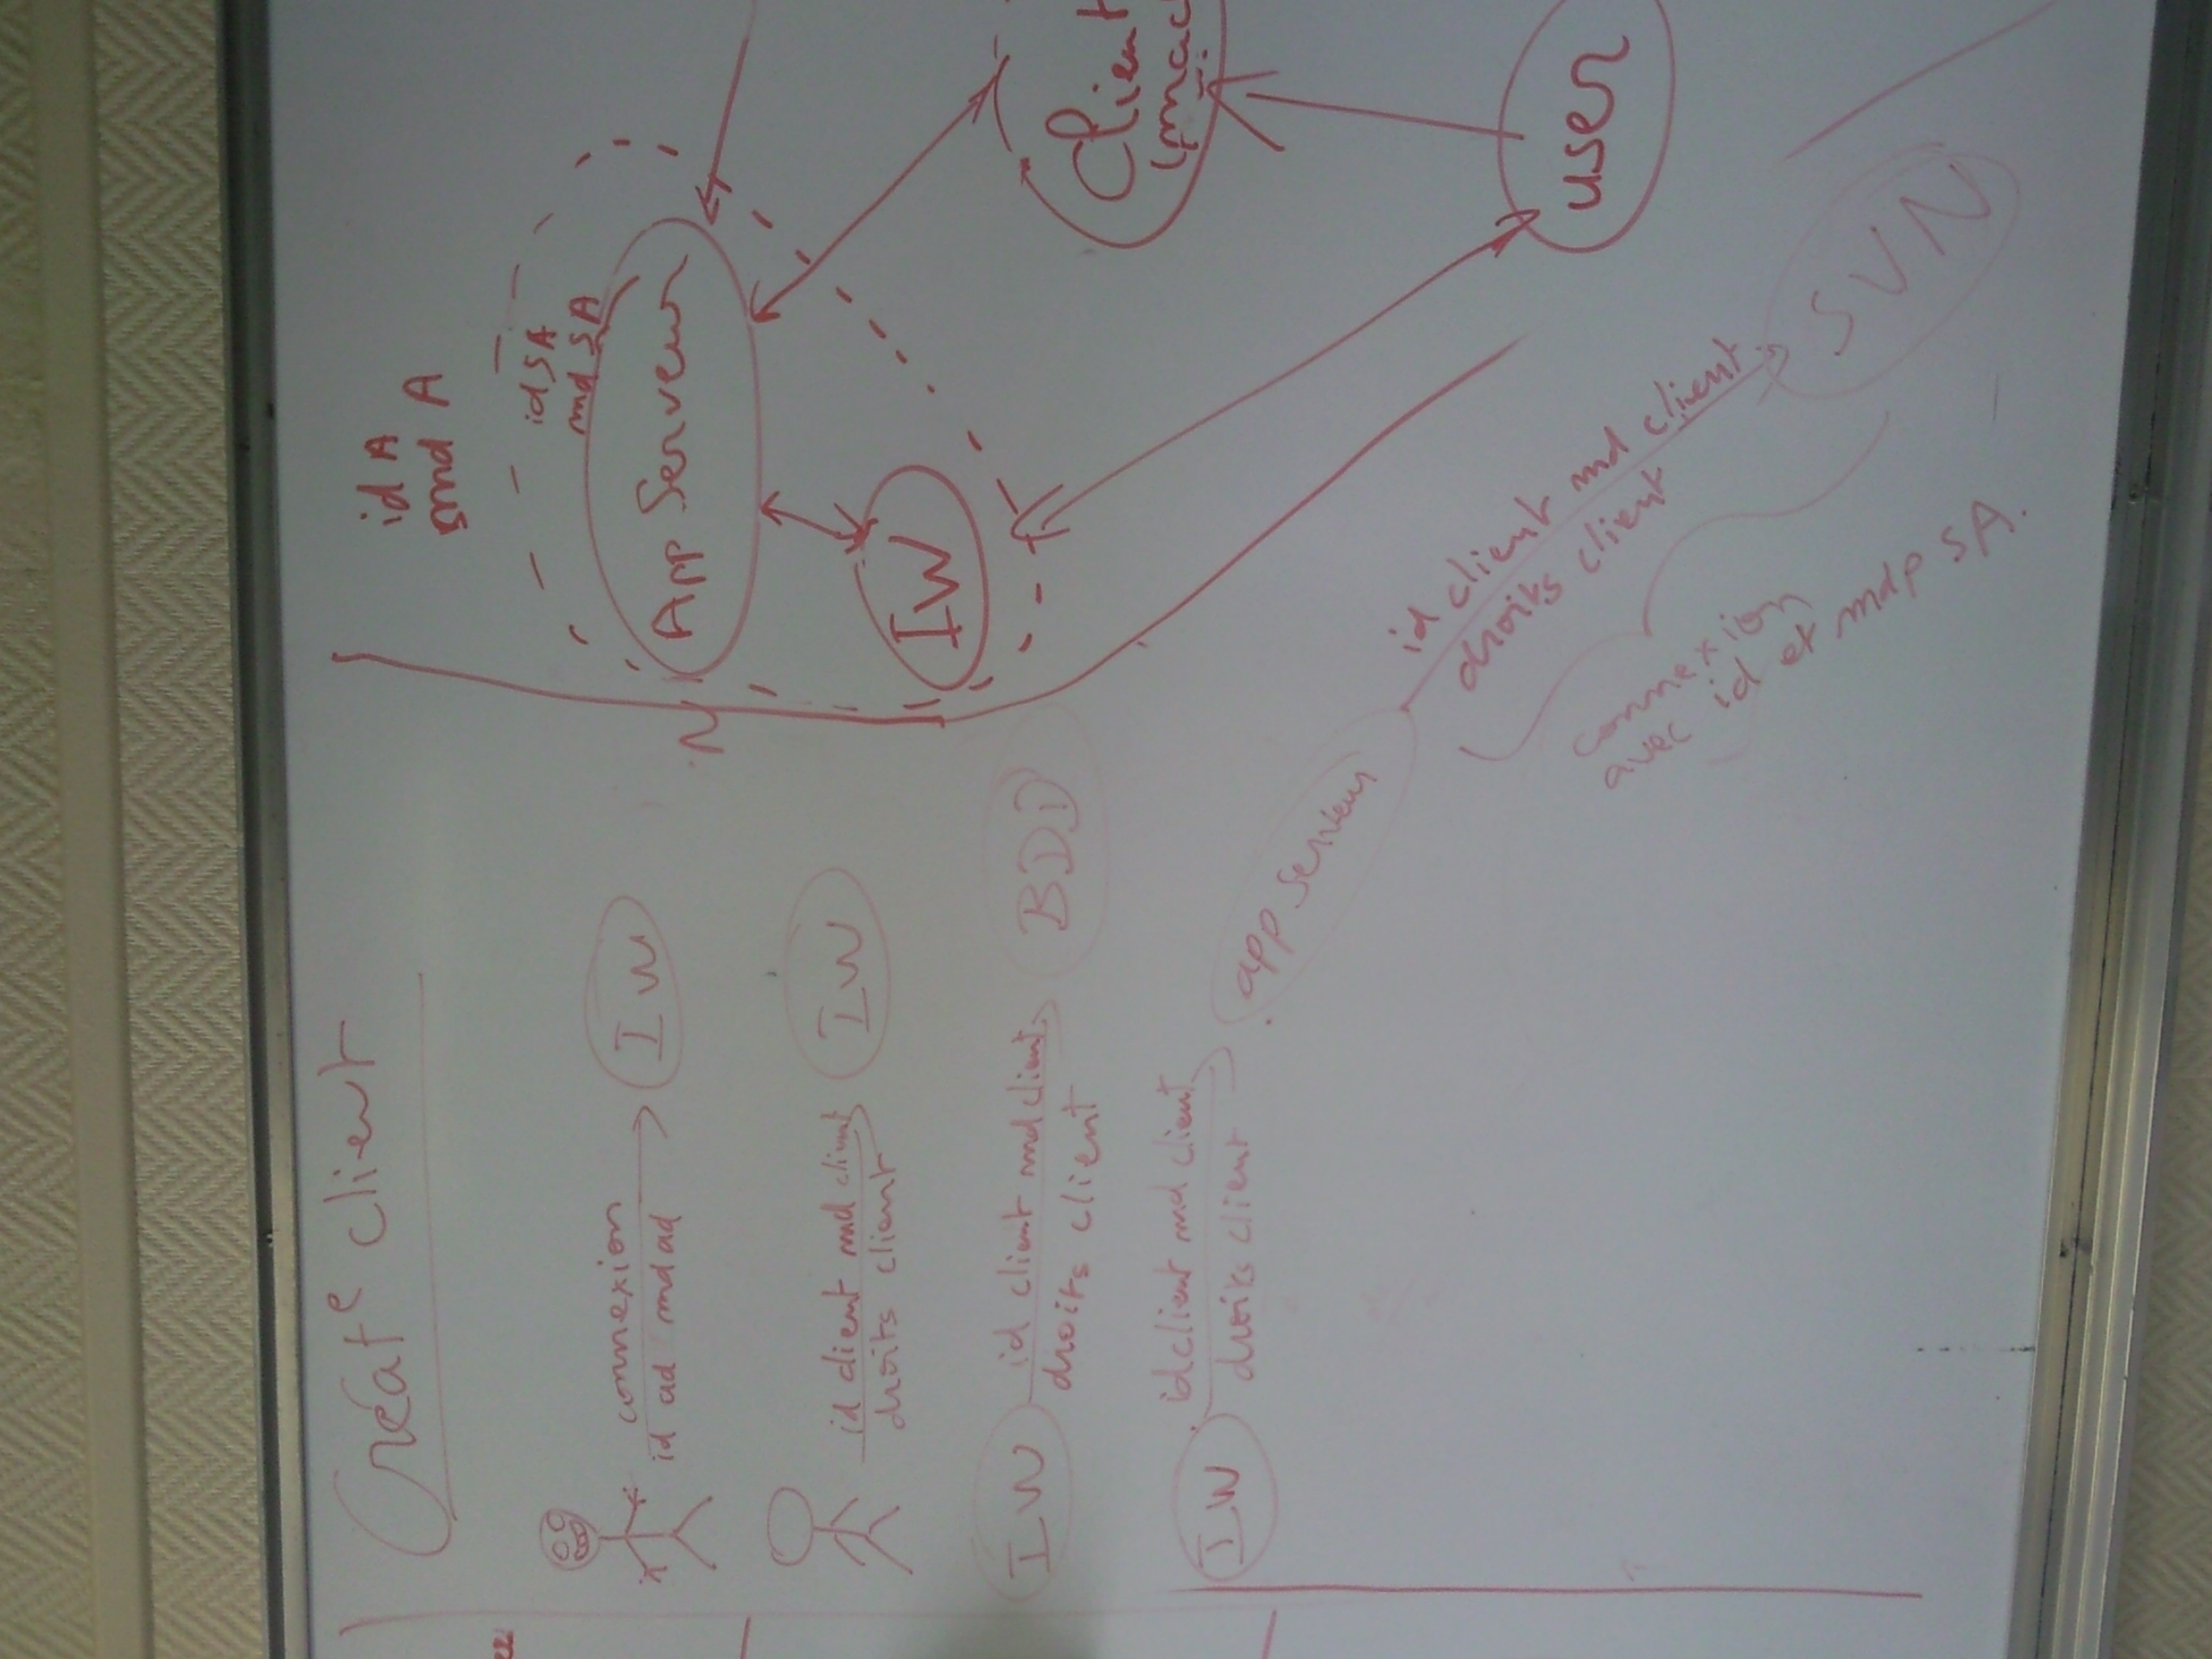 Créat° client
connexion
id ad md ad
IW
id client md client
droits client
IW
IW
id client md client
droits client
BDD
IW
id client md client
droits client
app Serveur
id client md client
droits client
connexion
avec id et mdp SA.
SVN
id A
md A
id SA
md SA
App Serveur
IW
Client
user